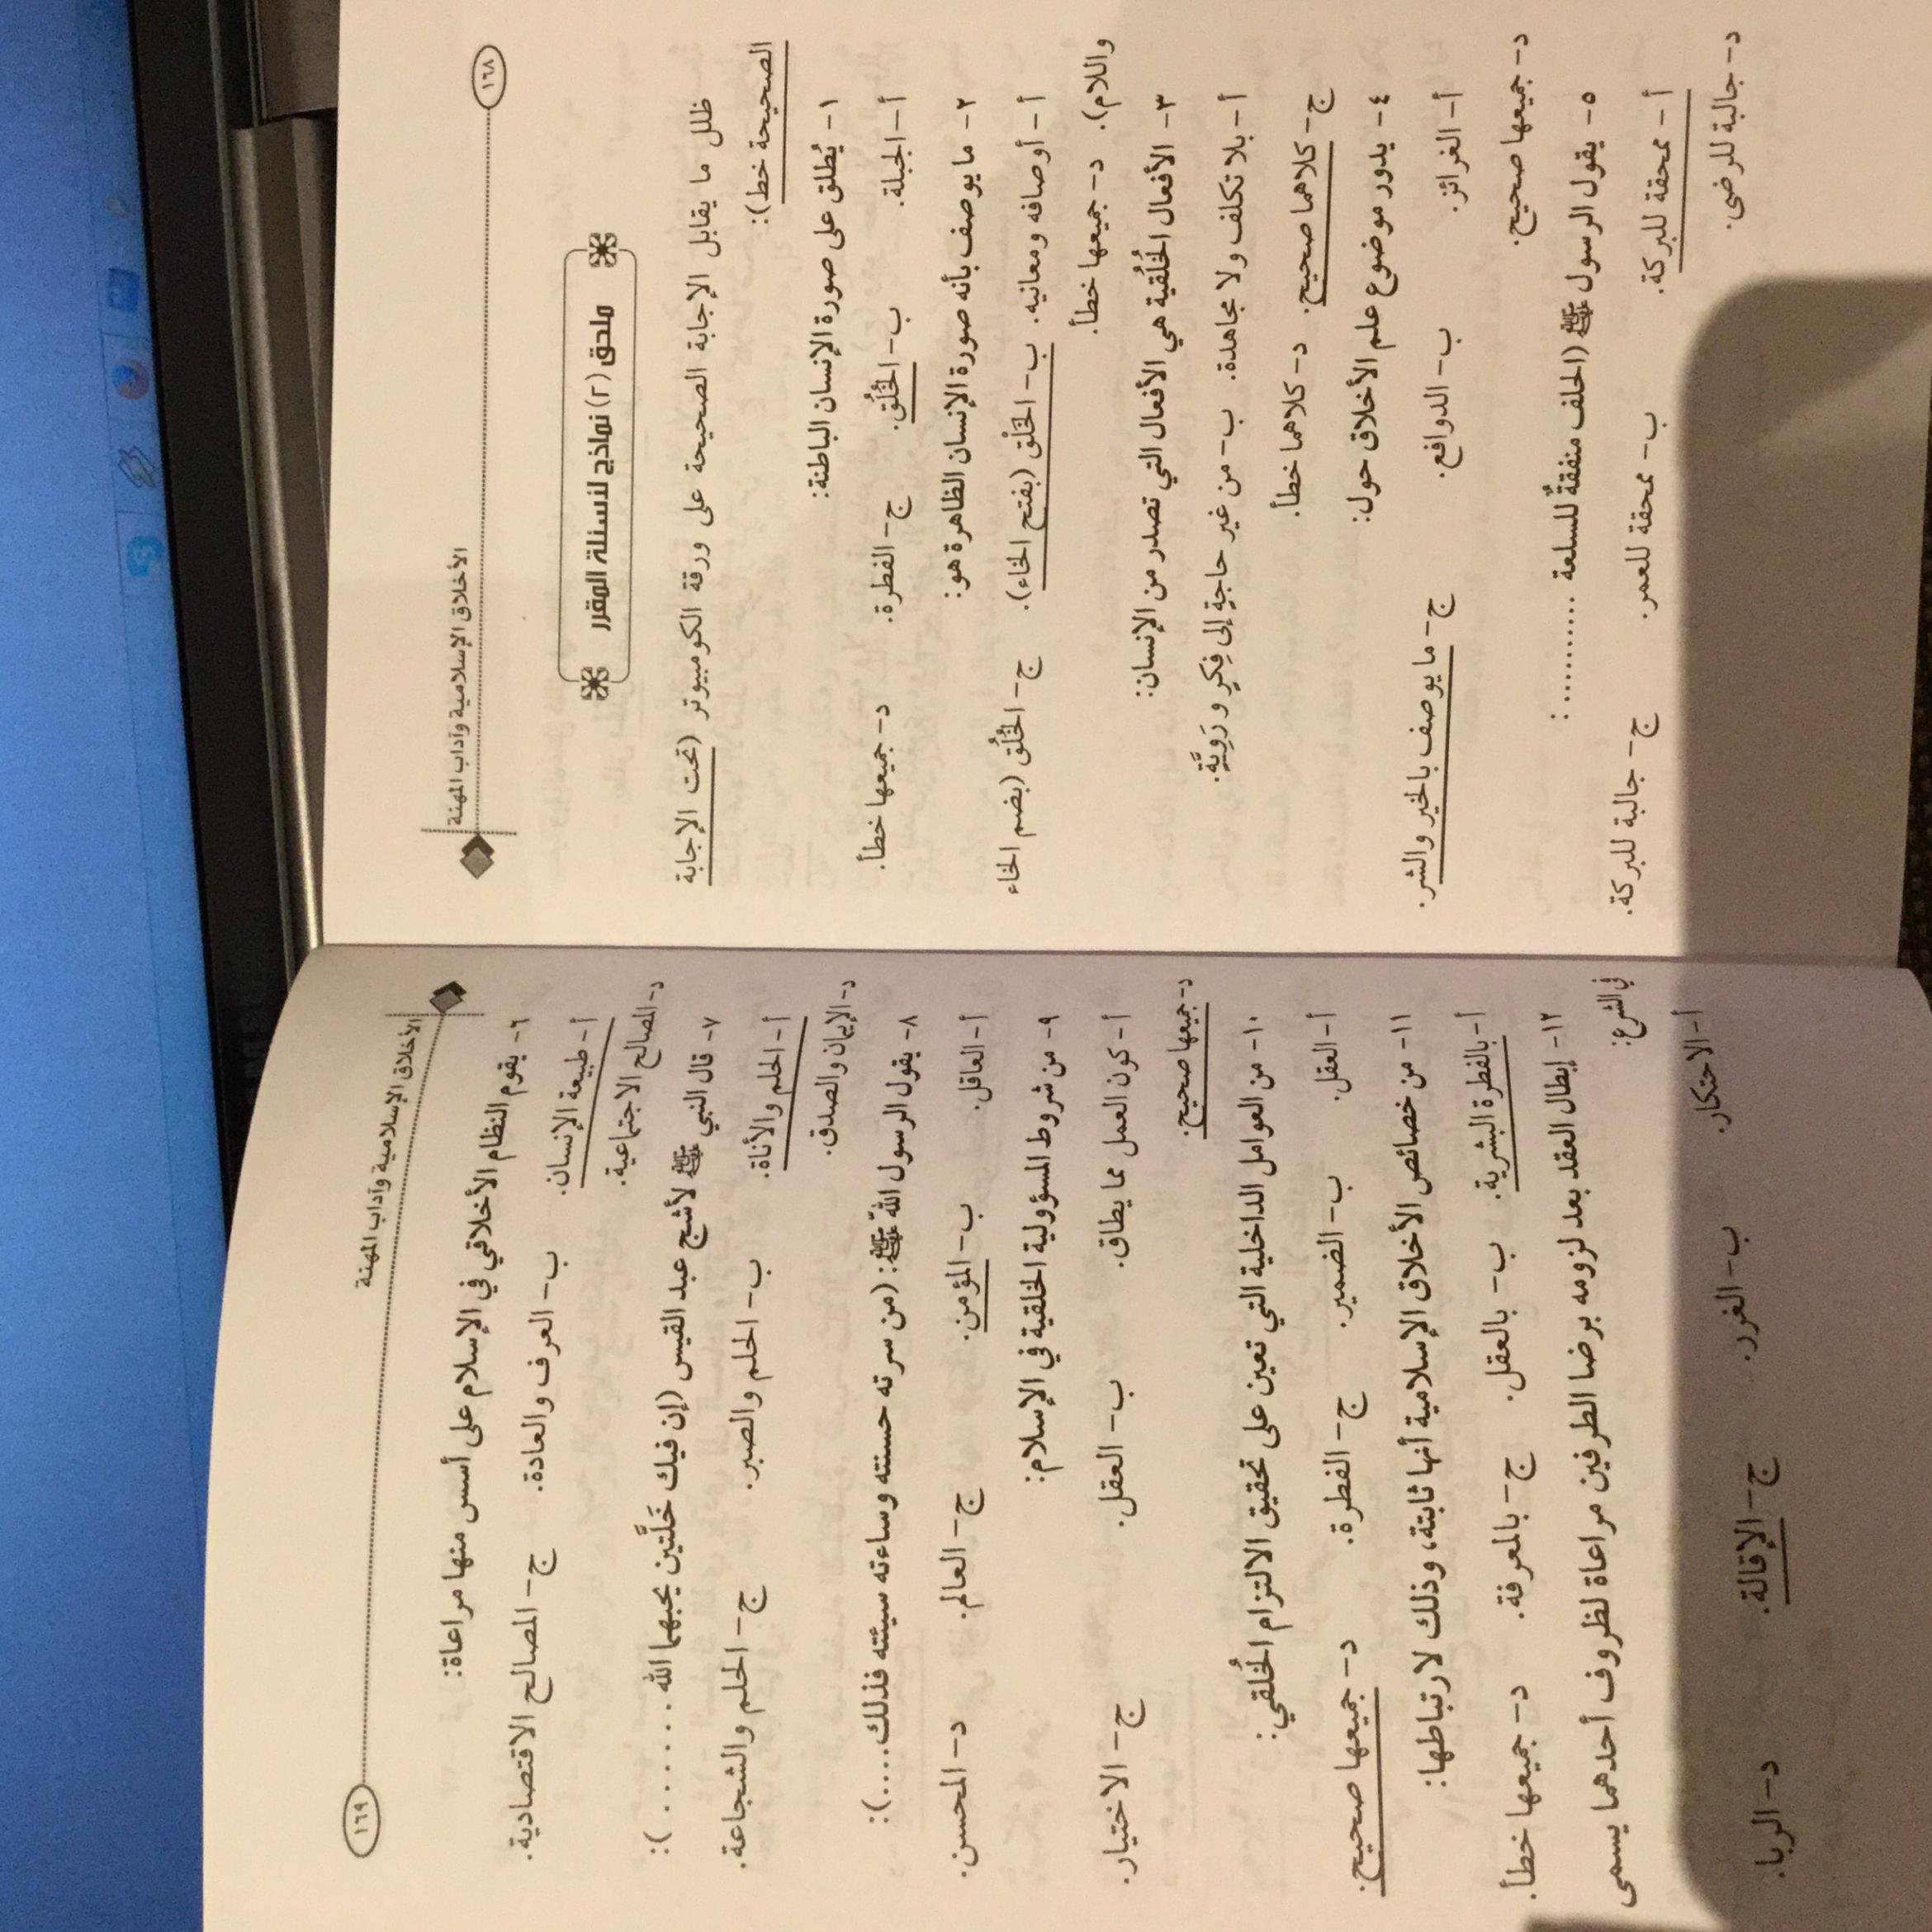 ١٦٨
الأخلاق الإسلامية وآداب المهنة
ملحق (٢) نماذج لأسئلة المقرر
ظلل ما يقابل الإجابة الصحيحة على ورقة الكومبيوتر (تحت الإجابة
الصحيحة خط):
١- يُطلق على صورة الإنسان الباطنة:
أ- الجبلة. ب- الخُلُق. ج- الفطرة. د- جميعها خطأ.
٢- ما يوصف بأنه صورة الإنسان الظاهرة هو:
أ- أوصافه ومعانيه. ب- الخَلْق (بفتح الخاء). ج- الخُلُق (بضم الخاء
واللام). د- جميعها خطأ.
٣- الأفعال الخُلُقية هي الأفعال التي تصدر من الإنسان:
أ- بلا تكلف ولا مجاهدة. ب- من غير حاجةٍ إلى فِكرٍ ورَوِيَّة.
ج- كلاهما صحيح. د- كلاهما خطأ.
٤- يدور موضوع علم الأخلاق حول:
أ- الغرائز. ب- الدوافع. ج- ما يوصف بالخير والشر.
د- جميعها صحيح.
٥- يقول الرسول ﷺ (الحلف منفقةٌ للسلعة ...........:
أ- ممحقة للبركة. ب- ممحقة للعمر. ج- جالبة للبركة.
د- جالبة للرضى.
الأخلاق الإسلامية وآداب المهنة
١٦٩
٦- يقوم النظام الأخلاقي في الإسلام على أسس منها مراعاة:
أ- طبيعة الإنسان. ب- العرف والعادة. ج- المصالح الاقتصادية.
د- المصالح الاجتماعية.
٧- قال النبي ﷺ لأشج عبد القيس (إن فيك خَلَّتين يحبهما الله .......):
أ- الحلم والأناة. ب- الحلم والصبر. ج- الحلم والشجاعة.
د- الإيمان والصدق.
٨- يقول الرسول اللّٰه ﷺ: (من سرته حسنته وساءته سيئته فذلك....):
أ- العاقل. ب- المؤمن. ج- العالم. د- المحسن.
٩- من شروط المسؤولية الخلقية في الإسلام:
أ- كون العمل مما يطاق. ب- العقل. ج- الاختيار.
د- جميعها صحيح.
١٠- من العوامل الداخلية التي تعين على تحقيق الالتزام الخُلقي:
أ- العقل. ب- الضمير. ج- الفطرة. د- جميعها صحيح.
١١- من خصائص الأخلاق الإسلامية أنها ثابتة، وذلك لارتباطها:
أ- بالفطرة البشرية. ب- بالعقل. ج- بالمعرفة. د- جميعها خطأ.
١٢- إبطال العقد بعد لزومه برضا الطرفين مراعاة لظروف أحدهما يسمى
في الشرع:
أ- الاحتكار. ب- الغرر. ج- الإقالة. د- الربا.